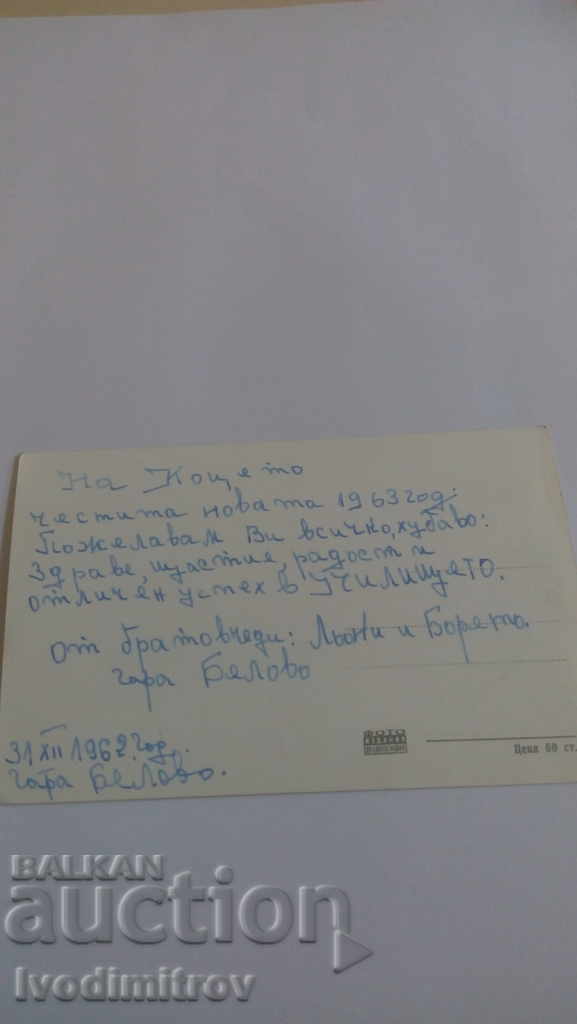 На Кощето
честита новата 1963 год:
Пожелавам Ви всичко, хубаво:
Здраве, щастие, радост и
отличен успех в Училището.
от братовчеди: Льони и Борето.
гара Белово
31 XII 1962 год.
гара Белово.
ФОТО
Цена 60 ст.
BALKAN
auction
Ivodimitrov